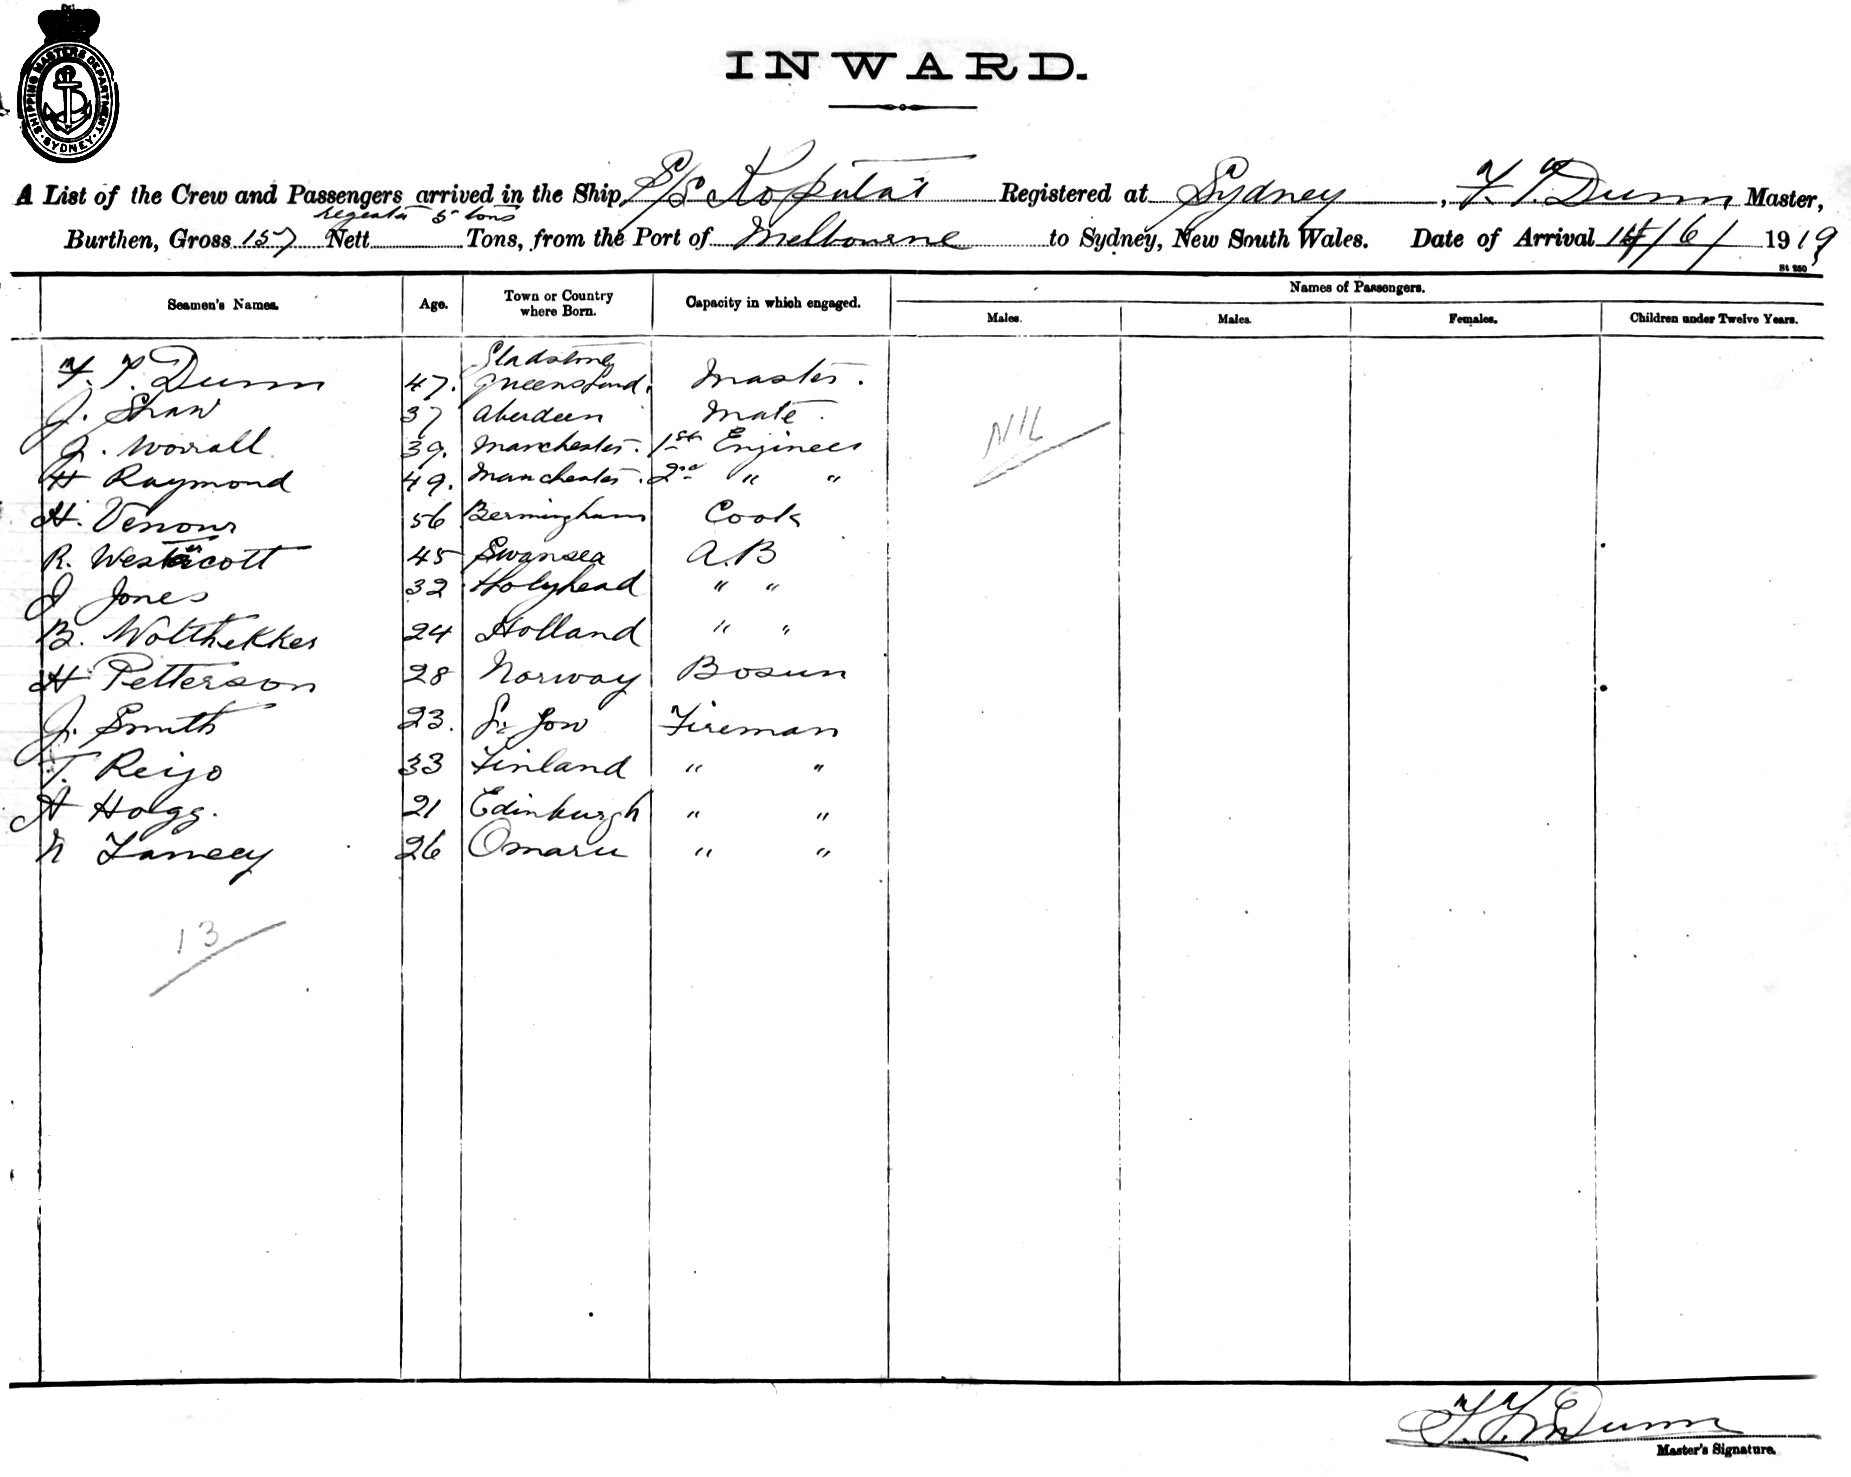 SHIPPING MASTERS DEPARTMENT
SYDNEY
INWARD.
A List of the Crew and Passengers arrived in the Ship S/S Koputai Registered at Sydney, F. T. Dunn Master,
Register 5 tons
Burthen, Gross 157 Nett Tons, from the Port of Melbourne to Sydney, New South Wales. Date of Arrival 14/6/1919
St 250
Names of Passengers.
Seamen's Names. Age. Town or Country where Born. Capacity in which engaged. Males. Males. Females. Children under Twelve Years.
Gladstone
F. T. Dunn 47. Queensland. Master.
J. Shaw 37 Aberdeen Mate.
J. Worrall 39. Manchester. 1st Engineer
NIL
H Raymond 49. Manchester. 2nd " "
H. Venour 56 Bermingham Cook
R. Westcott 45 Swansea A.B
J Jones 32 Holyhead " "
B. Wolthekker 24 Holland " "
H Petterson 28 Norway Bosun
J. Smith 23. Fireman
T. Reijo 33 Finland " "
A Hogg. 21 Edinburgh " "
26 Omaru " "
13
F. T. Dunn
Master's Signature.